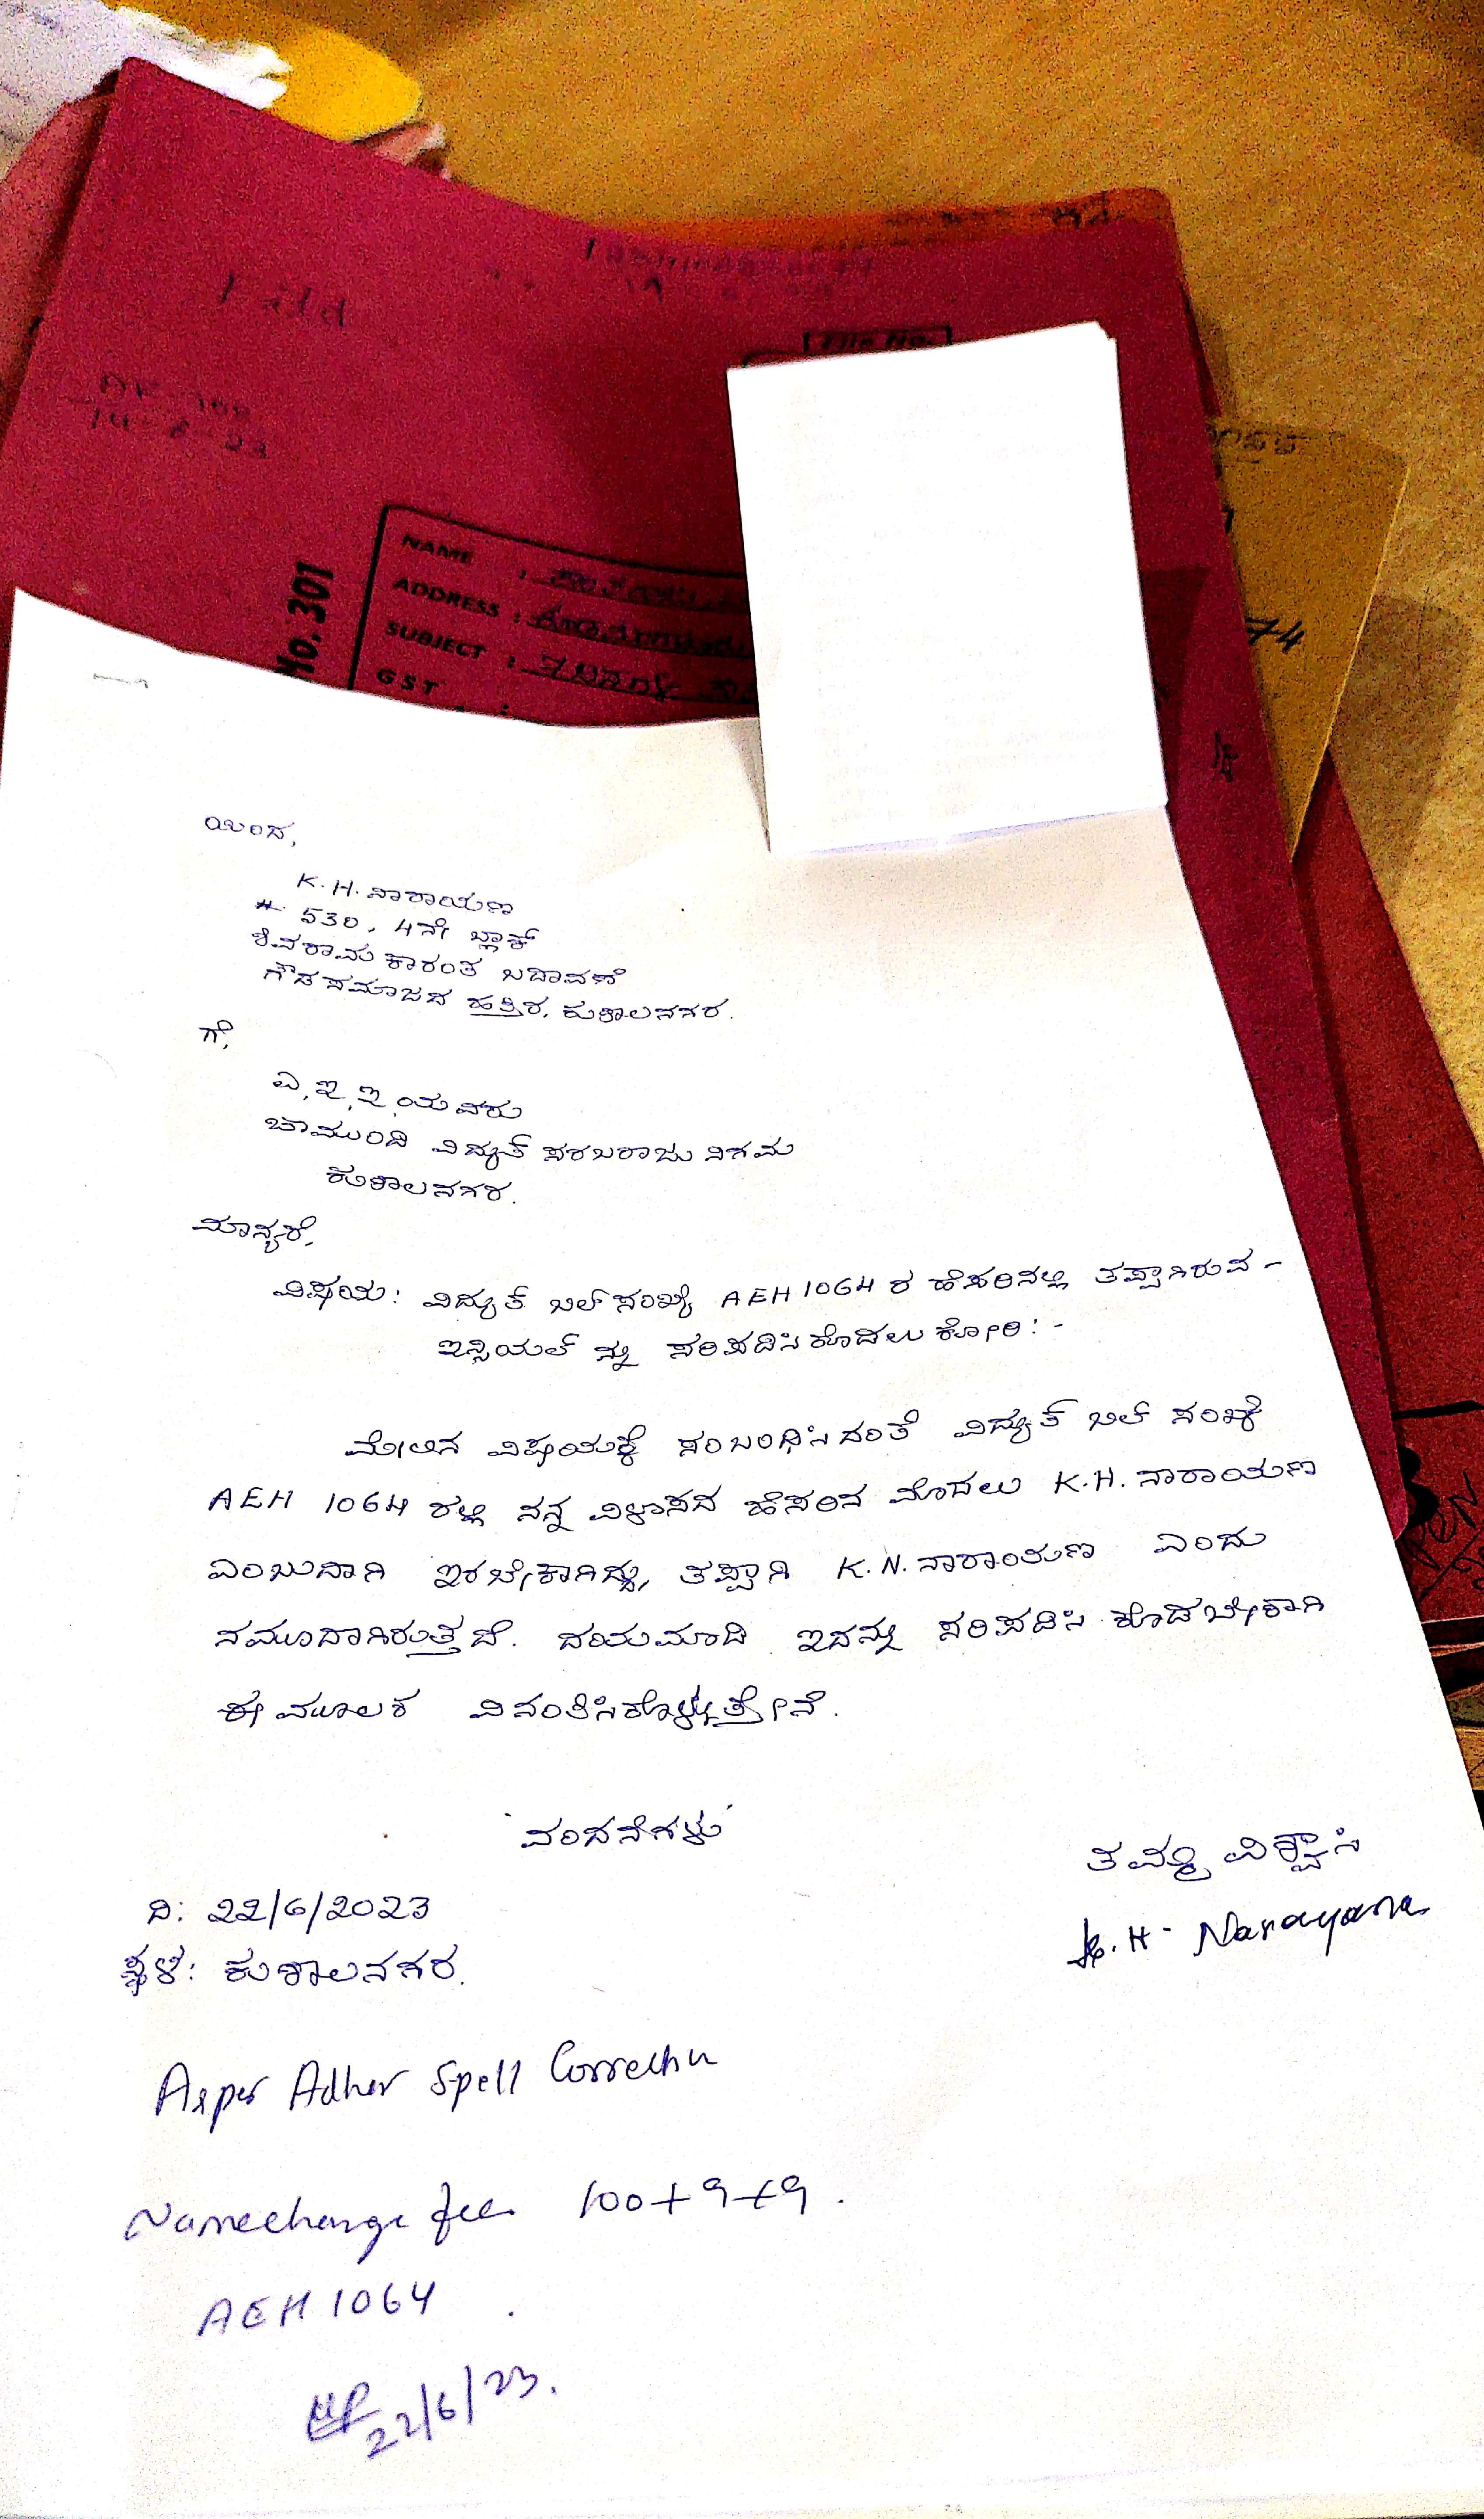 File No.
No. 301
NAME :
ADDRESS :
SUBJECT :
GST
74
ಯಿಂದ,
K. H. ನಾರಾಯಣ
# 530, 4ನೇ ಬ್ಲಾಕ್
ಶಿವರಾಮ ಕಾರಂತ ಬಡಾವಣೆ
ಗೌಡ ಸಮಾಜದ ಹತ್ತಿರ, ಕುಶಾಲನಗರ.
ಗೆ,
ಎ, ಇ, ಇ, ಯವರು
ಚಾಮುಂಡಿ ವಿದ್ಯುತ್ ಸರಬರಾಜು ನಿಗಮ
ಕುಶಾಲನಗರ.
ಮಾನ್ಯರೆ,
ವಿಷಯ: ವಿದ್ಯುತ್ ಬಿಲ್ ಸಂಖ್ಯೆ AEH 1064 ರ ಹೆಸರಿನಲ್ಲಿ ತಪ್ಪಾಗಿರುವ -
ಇನ್ಸಿಯಲ್ ನ್ನು ಸರಿಪಡಿಸಿಕೊಡಲು ಕೋರಿ: -
ಮೇಲಿನ ವಿಷಯಕ್ಕೆ ಸಂಬಂಧಿಸಿದಂತೆ ವಿದ್ಯುತ್ ಬಿಲ್ ಸಂಖ್ಯೆ
AEH 1064 ರಲ್ಲಿ ನನ್ನ ವಿಳಾಸದ ಹೆಸರಿನ ಮೊದಲು K.H. ನಾರಾಯಣ
ಎಂಬುದಾಗಿ ಇರಬೇಕಾಗಿದ್ದು, ತಪ್ಪಾಗಿ K.N. ನಾರಾಯಣ ಎಂದು
ನಮೂದಾಗಿರುತ್ತದೆ. ದಯಮಾಡಿ ಇದನ್ನು ಸರಿಪಡಿಸಿ ಕೊಡಬೇಕಾಗಿ
ಈ ಮೂಲಕ ವಿನಂತಿಸಿಕೊಳ್ಳುತ್ತೇನೆ.
'ವಂದನೆಗಳು'
ತಮ್ಮ ವಿಶ್ವಾಸಿ
K. H - Narayana
ದಿ: 22/6/2023
ಸ್ಥಳ: ಕುಶಾಲನಗರ.
Asper Adher Spell Correctin
Namechange fee 100+9+9.
AEH 1064
22/6/23.